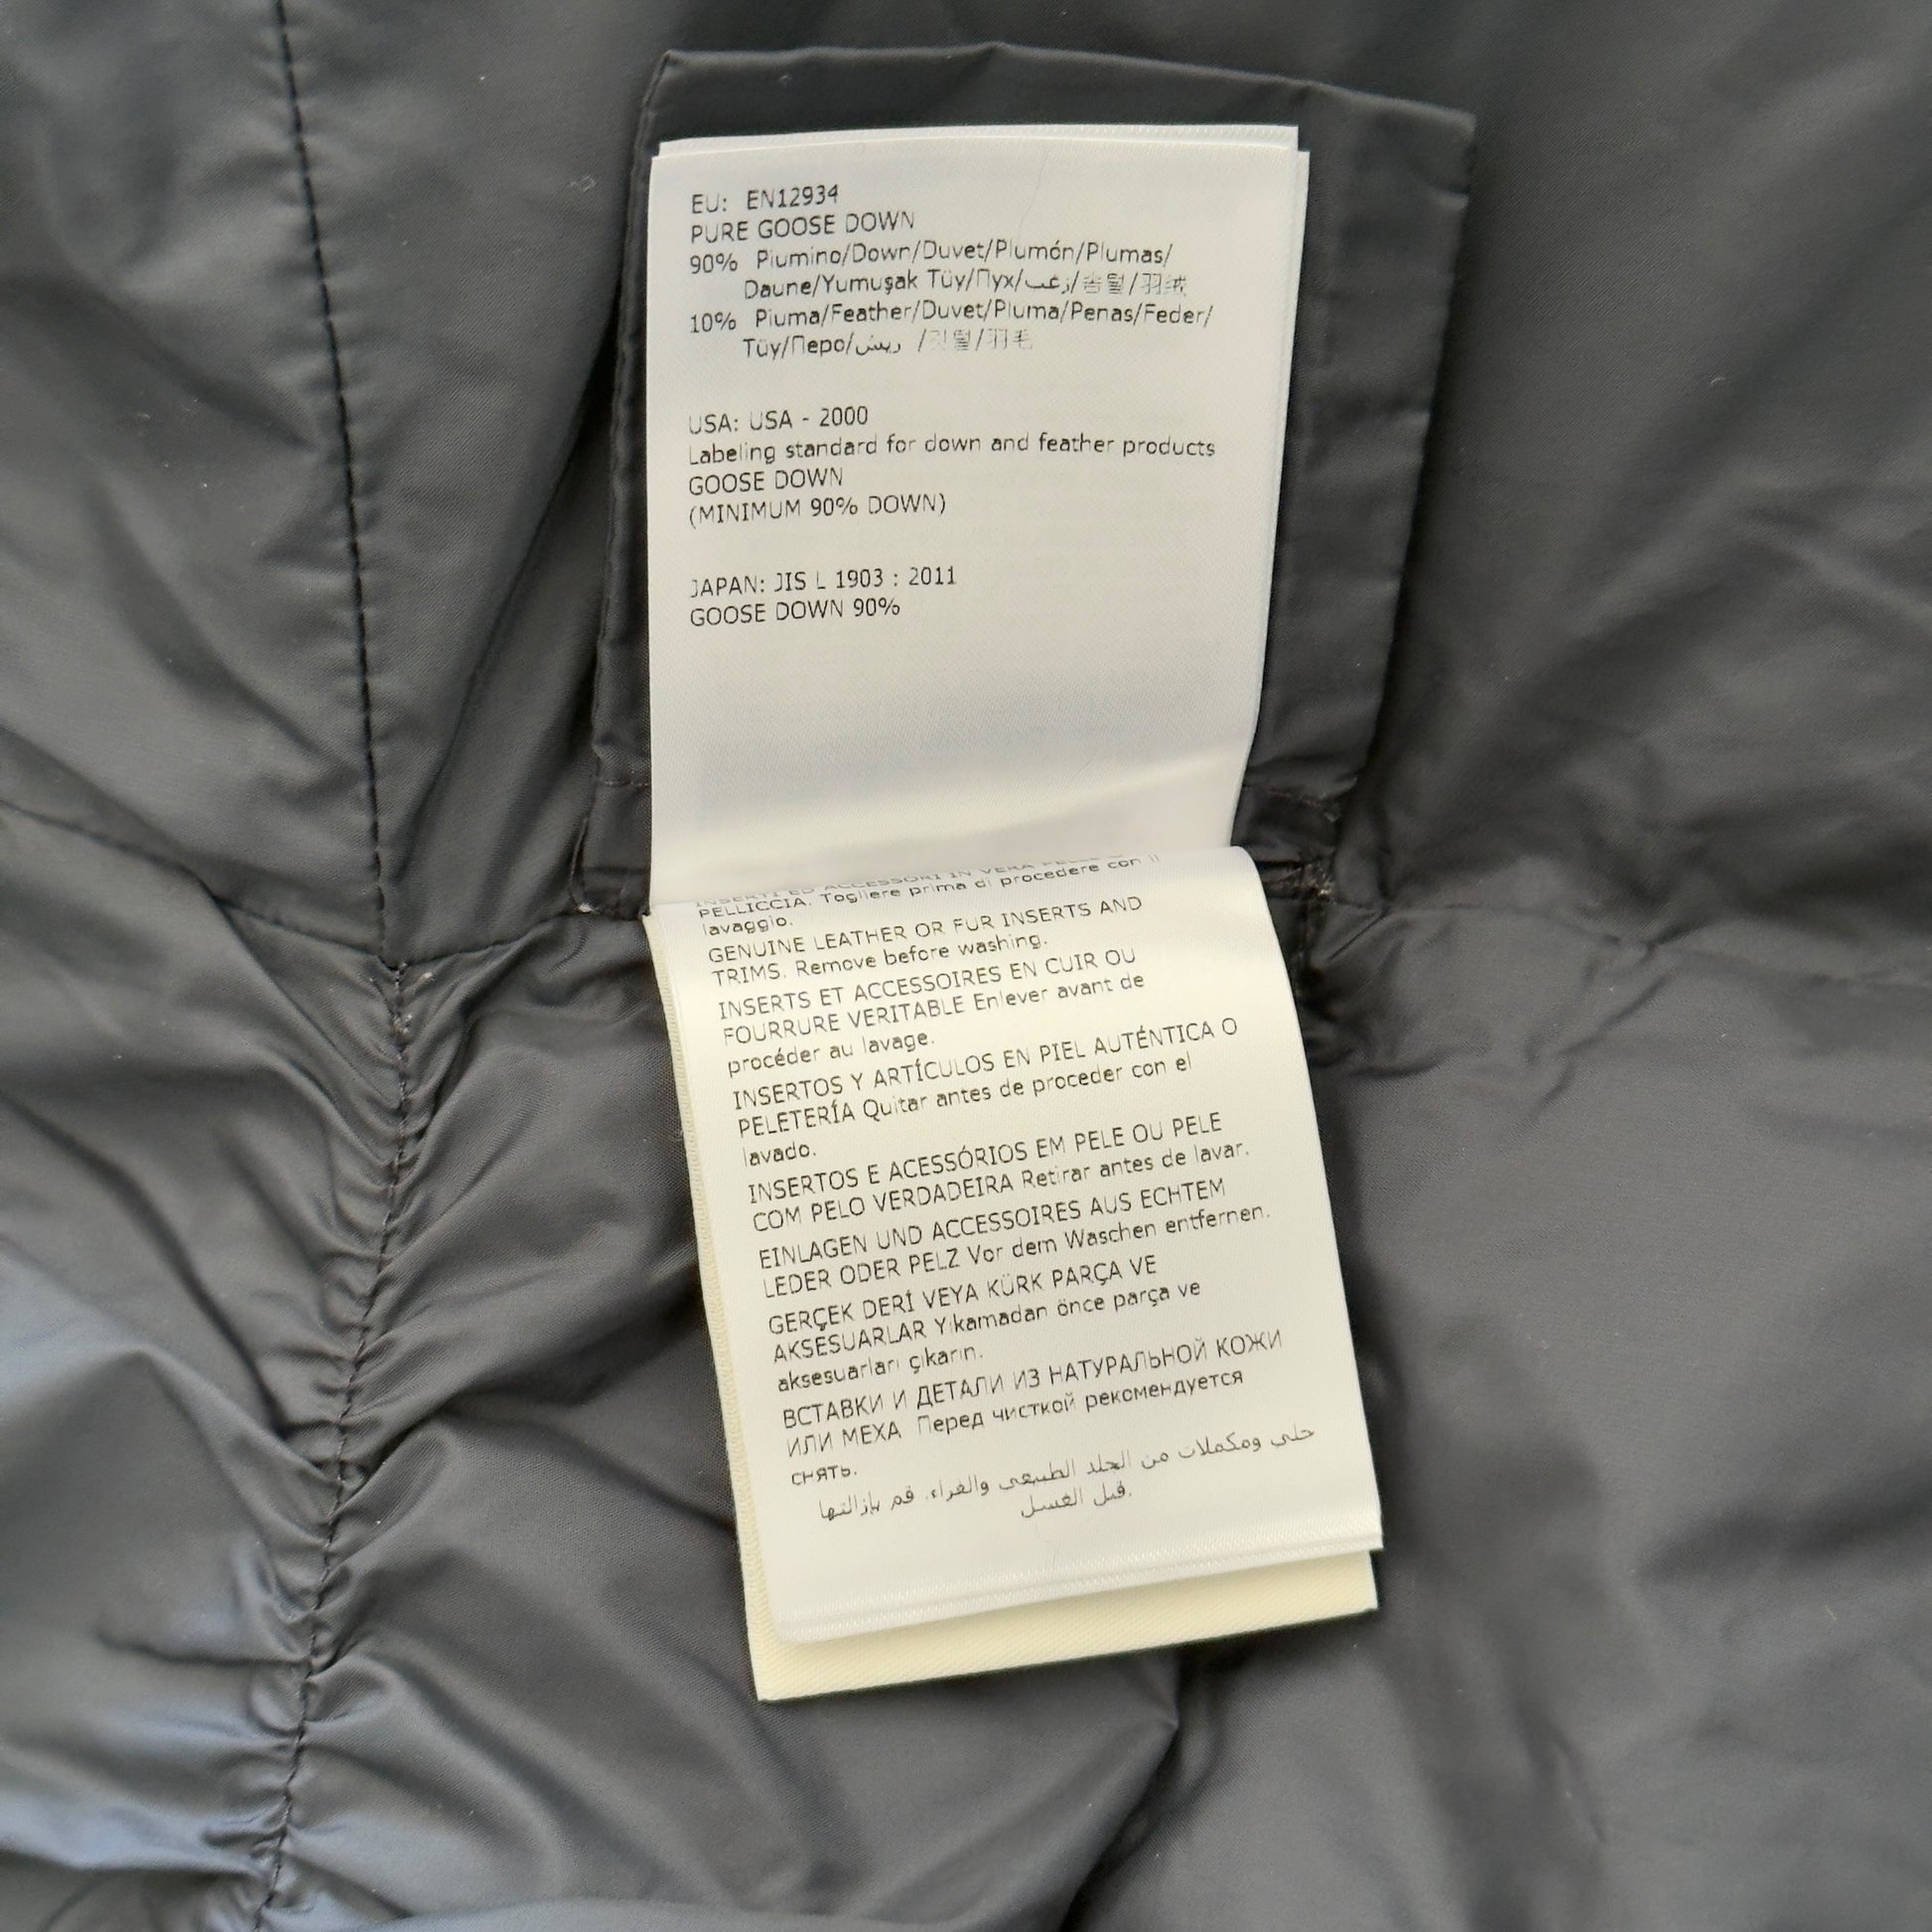 EU: EN12934
PURE GOOSE DOWN
90% Piumino/Down/Duvet/Plumón/Plumas/
Daune/Yumuşak Tüy/Пух/زغب/솜털/羽绒
10% Piuma/Feather/Duvet/Pluma/Penas/Feder/
Tüy/Перо/ريش /깃털/羽毛
USA: USA - 2000
Labeling standard for down and feather products
GOOSE DOWN
(MINIMUM 90% DOWN)
JAPAN: JIS L 1903 : 2011
GOOSE DOWN 90%
INSERTI ED ACCESSORI IN VERA PELLE O
PELLICCIA. Togliere prima di procedere con il
lavaggio.
GENUINE LEATHER OR FUR INSERTS AND
TRIMS. Remove before washing.
INSERTS ET ACCESSOIRES EN CUIR OU
FOURRURE VERITABLE Enlever avant de
procéder au lavage.
INSERTOS Y ARTÍCULOS EN PIEL AUTÉNTICA O
PELETERÍA Quitar antes de proceder con el
lavado.
INSERTOS E ACESSÓRIOS EM PELE OU PELE
COM PELO VERDADEIRA Retirar antes de lavar.
EINLAGEN UND ACCESSOIRES AUS ECHTEM
LEDER ODER PELZ Vor dem Waschen entfernen.
GERÇEK DERİ VEYA KÜRK PARÇA VE
AKSESUARLAR Yıkamadan önce parça ve
aksesuarları çıkarın.
ВСТАВКИ И ДЕТАЛИ ИЗ НАТУРАЛЬНОЙ КОЖИ
ИЛИ МЕХА Перед чисткой рекомендуется
снять.
حلى ومكملات من الجلد الطبيعى والفراء. قم بإزالتها
قبل الغسل.